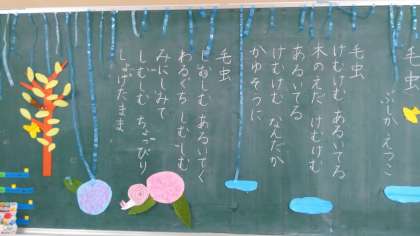 毛虫
ぶしか えつこ
毛虫
けむけむ あるいてる
木のえだ けむけむ
あるいてる
けむけむ なんだか
かゆそうに
毛虫
しむしむ あるいてく
わるぐち しむしむ
みにしみて
しむしむ ちょっぴり
しょげたまま